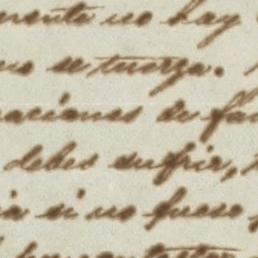 mente no hay
no se tuerza.
aciones de fa
debes sufrir,
ia si no fuese